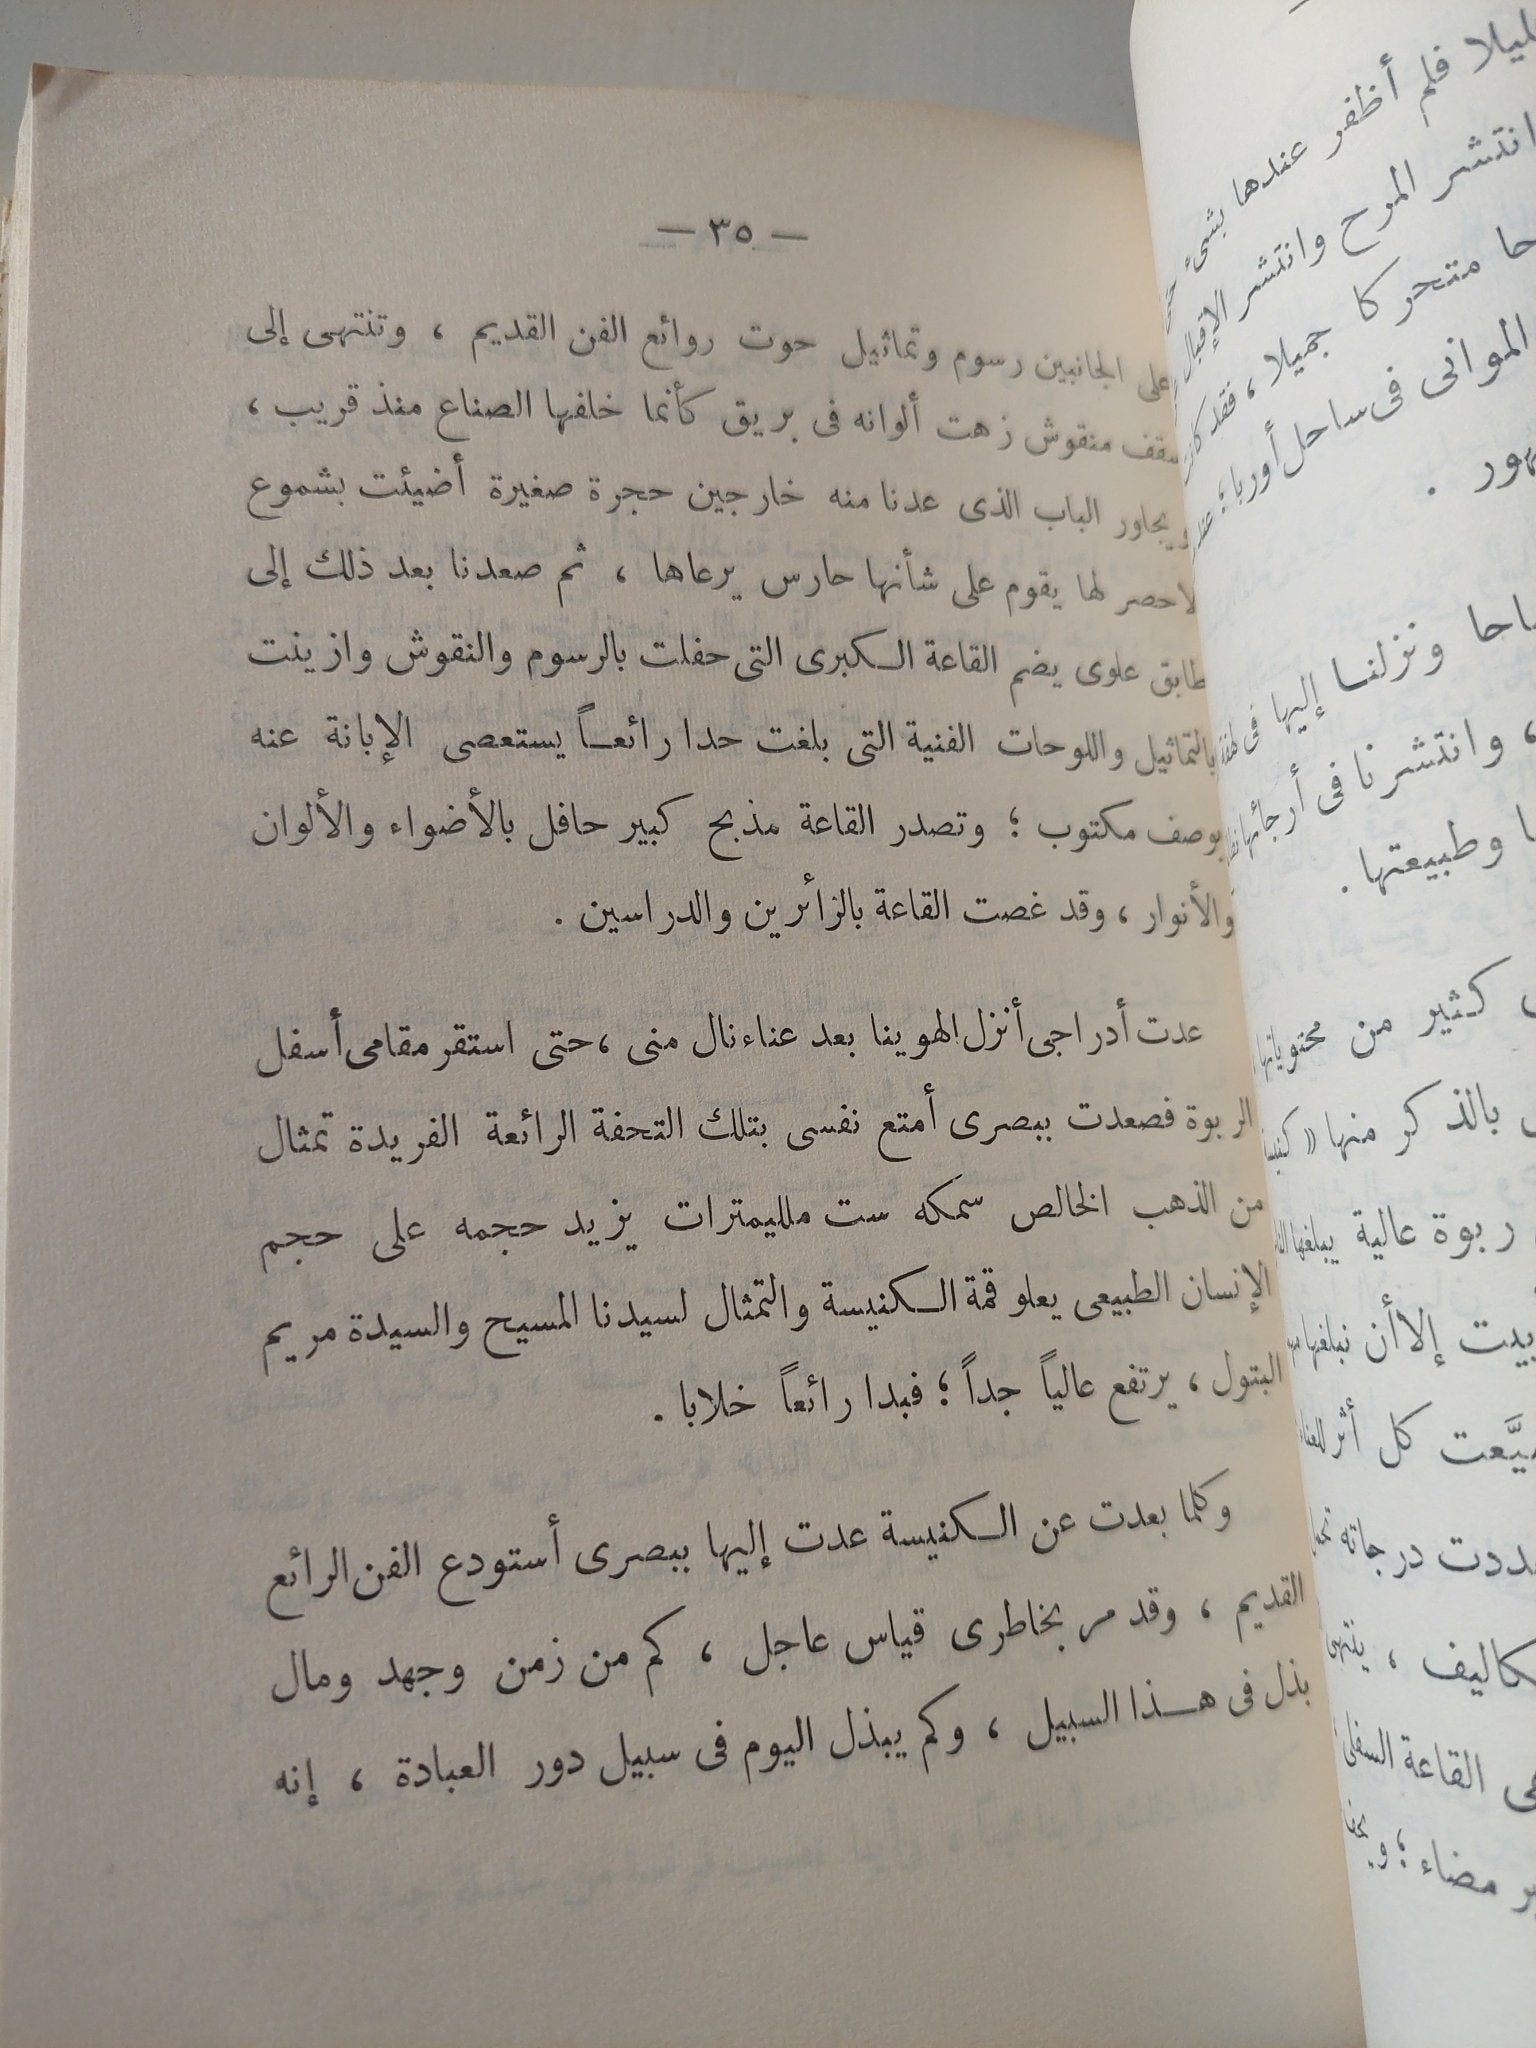 — ٣٥ —
على الجانبين رسوم وتماثيل حوت روائع الفن القديم ، وتنتهى إلى
سقف منقوش زهت ألوانه فى بريق كأنما خلفها الصناع منذ قريب ،
ويجاور الباب الذى عدنا منه خارجين حجرة صغيرة أضيئت بشموع
لاحصر لها يقوم على شأنها حارس يرعاها ، ثم صعدنا بعد ذلك إلى
طابق علوى يضم القاعة الكبرى التى حفلت بالرسوم والنقوش وازينت
بالتماثيل واللوحات الفنية التى بلغت حدا رائعاً يستعصى الإبانة عنه
بوصف مكتوب ؛ وتصدر القاعة مذبح كبير حافل بالأضواء والألوان
والأنوار ، وقد غصت القاعة بالزائرين والدراسين .
عدت أدراجى أنزل الهوينا بعد عناء نال منى ، حتى استقر مقامى أسفل
الربوة فصعدت ببصرى أمتع نفسى بتلك التحفة الرائعة الفريدة تمثال
من الذهب الخالص سمكه ست ملليمترات يزيد حجمه على حجم
الإنسان الطبيعى يعلو قمة الكنيسة والتمثال لسيدنا المسيح والسيدة مريم
البتول ، يرتفع عالياً جداً ؛ فبدا رائعاً خلابا .
وكلما بعدت عن الكنيسة عدت إليها ببصرى أستودع الفن الرائع
القديم ، وقد مر بخاطرى قياس عاجل ، كم من زمن وجهد ومال
بذل فى هذا السبيل ، وكم يبذل اليوم فى سبيل دور العبادة ، إنه
فلم أظفر عندها بشىء
انتشر المرح وانتشر الإقبال
متحركا جميلا ، فقد
الموانى فى ساحل أوربا ؛
ونزلنا إليها فى
، وانتشرنا فى أرجائها
وطبيعتها .
كثير من محتوياتها
بالذكر منها «
ربوة عالية يبلغها
إلا أن نبلغها
كل أثر للعناء
درجاته
، ينتهى
القاعة السفلى
مضاء ؛